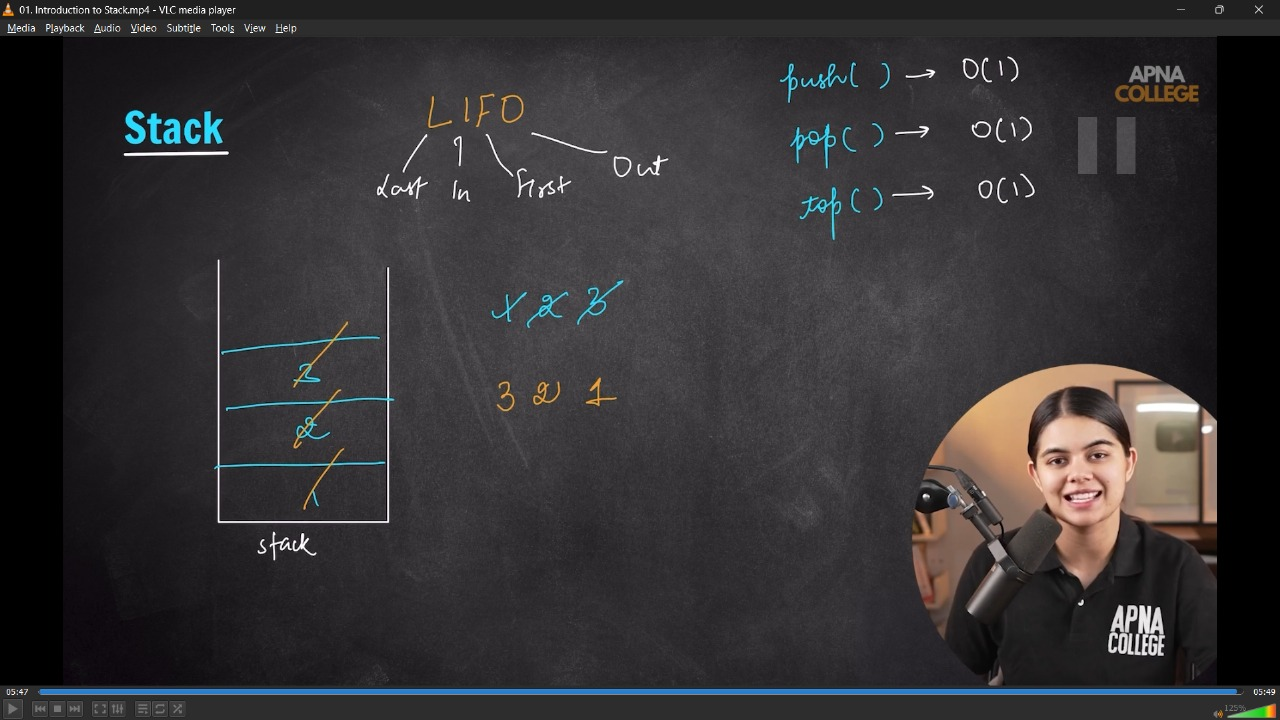 01. Introduction to Stack.mp4 - VLC media player
Media Playback Audio Video Subtitle Tools View Help
Stack
LIFO
Last In First Out
push( ) → O(1)
pop( ) → O(1)
top( ) → O(1)
APNA
COLLEGE
1 2 3
3 2 1
3
2
1
stack
APNA
COLLEGE
05:47
05:49
125%